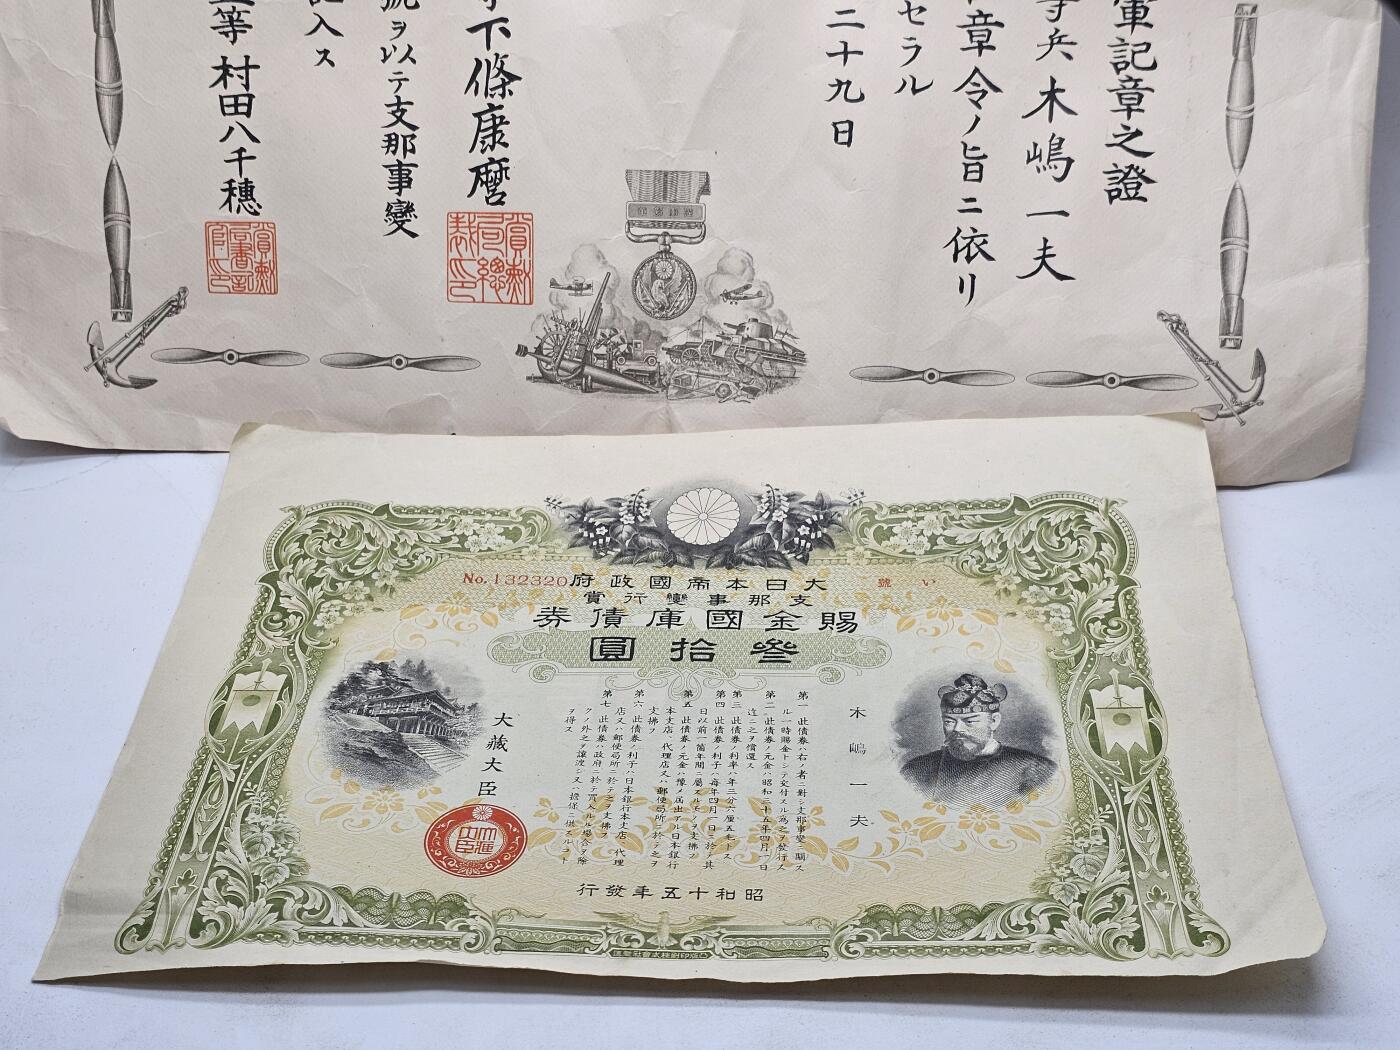 軍記章之證
等兵木嶋一夫
章令ノ旨ニ依リ
セラル
二十九日
下條康麿
號ヲ以テ支那事變
記入ス
等 村田八千穗
大日本帝國政府
い號
No.132320
支那事變行賞
賜金國庫債券
叄拾圓
木嶋一夫
第一 此債券ハ右ノ者ニ對シ支那事變ニ關ス
ル一時賜金トシテ交付スル爲之ヲ發行ス
第二 此債券ノ元金ハ昭和三十五年四月一日
迄ニ之ヲ償還ス
第三 此債券ノ利率ハ年三分六厘五毛トス
第四 此債券ノ利子ハ每年四月一日ニ於テ其
日以前一箇年間ニ屬スルモノヲ支拂フ
第五 此債券ノ元金ハ豫メ屆出アル日本銀行
本支店、代理店又ハ郵便局所ニ於テ之ヲ
支拂フ
第六 此債券ノ利子ハ日本銀行本支店、代理
店又ハ郵便局所ニ於テ之ヲ支拂フ
第七 此債券ハ政府ニ於テ買入ルル場合ヲ除
クノ外之ヲ讓渡シ又ハ擔保ニ供スルコト
ヲ得ス
大藏大臣
大藏大臣
昭和十五年發行